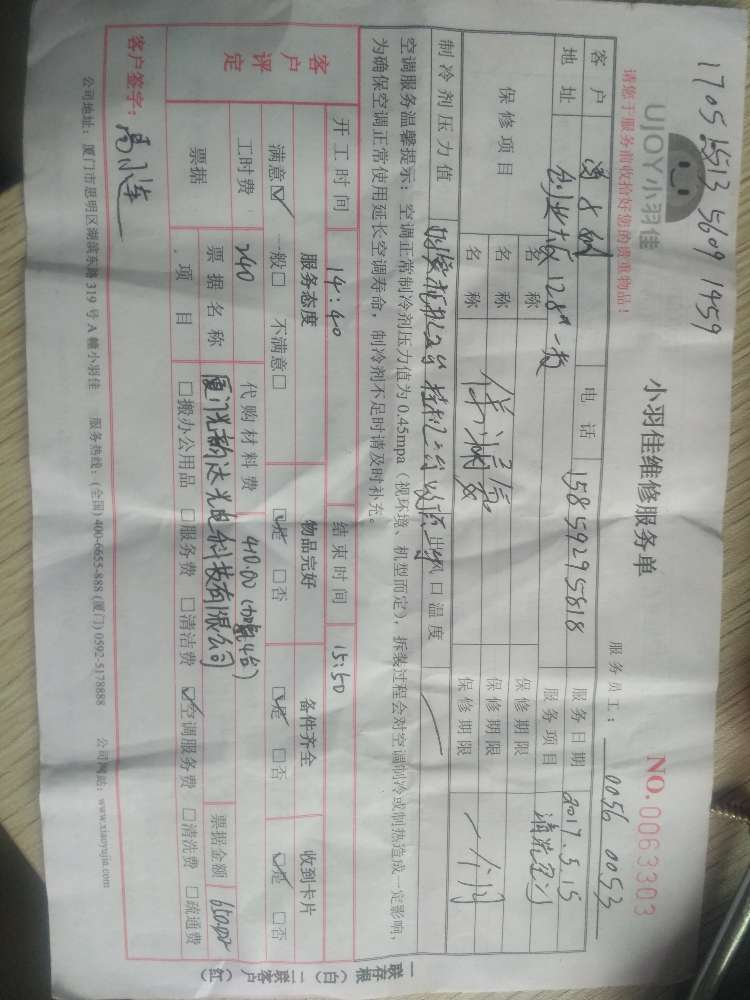 1705 1513 5609 1459
UJOY小羽佳
小羽佳维修服务单
NO.0063303
请您于服务前收拾好您的贵重物品！
服务员工： 0056 0053
客户 电话 15859295818 服务日期 2017.5.15
地址 创业大厦 128# 一楼 服务项目 清洗空调
保修项目 名称 保修期限
名称 保修期限
名称 保修期限 一个月
制冷剂压力值 出风口温度
空调服务温馨提示：空调正常制冷剂压力值为0.45mpa（视环境、机型而定），拆装过程会对空调制冷或制热造成一定影响，
为确保空调正常使用延长空调寿命，制冷剂不足时请及时补充。
开工时间 14:40 结束时间 15:50
客户评定 服务态度 物品完好 备件齐全 收到卡片
满意☑ 一般□ 不满意□ ☑是 □否 ☑是 □否 ☑是 □否
工时费 240 代购材料费 410.00（加氟4台）
票据 票据名称 厦门光韵达光电科技有限公司 票据金额 650.00
项目 □搬办公用品 □服务费 □清洁费 ☑空调服务费 □清洗费 □疏通费
客户签字：
公司地址：厦门市思明区湖滨东路319号A幢小羽佳 服务热线：(全国) 400-6655-888 (厦门) 0592-5178888 公司网站：www.xiaoyujia.com
一联存根（白）二联客户（红）